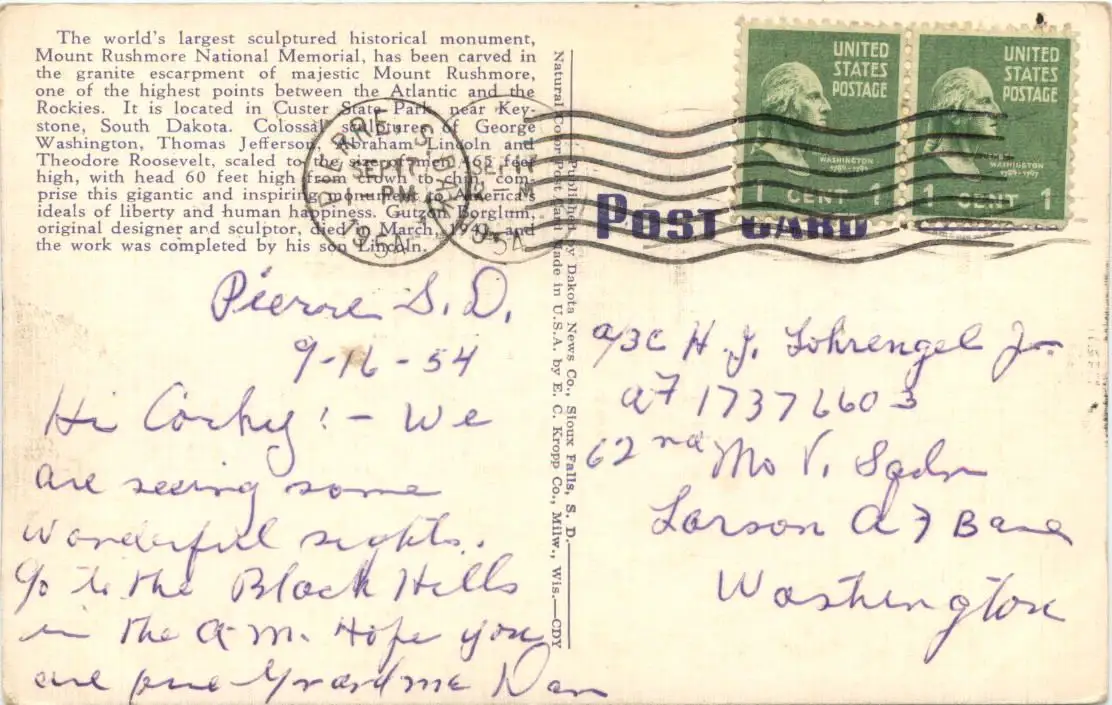 The world's largest sculptured historical monument,
Mount Rushmore National Memorial, has been carved in
the granite escarpment of majestic Mount Rushmore,
one of the highest points between the Atlantic and the
Rockies. It is located in Custer State Park, near Key-
stone, South Dakota. Colossal sculptures of George
Washington, Thomas Jefferson, Abraham Lincoln and
Theodore Roosevelt, scaled to the size of men 465 feet
high, with head 60 feet high from crown to chin, com-
prise this gigantic and inspiring monument to America's
ideals of liberty and human happiness. Gutzon Borglum,
original designer and sculptor, died in March, 1941, and
the work was completed by his son Lincoln.
Pierre S. D.
9-16-54
Hi Corky! - We
are seeing some
wonderful sights.
Go to the Black Hills
in the A.M. Hope you
are fine Grandma
Published by Dakota News Co., Sioux Falls, S. D.
Natural Color Post Card Made in U.S.A. by E. C. Kropp Co., Milw., Wis.—CDY
PIERRE, S. DAK.
SEP 17
PM
1954
SEP 17
1954
UNITED
STATES
POSTAGE
WASHINGTON
1789-1797
1 CENT 1
UNITED
STATES
POSTAGE
WASHINGTON
1789-1797
1 CENT 1
POST CARD
A/3C H. J. Lohrengel Jr.
AF 17376603
62nd Mo V. Sqdn
Larson AF Base
Washington